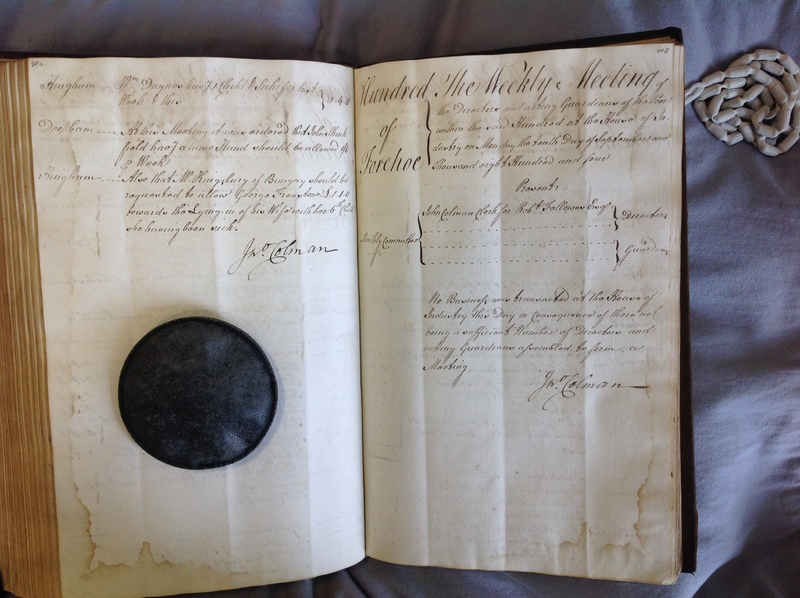 404
Hingham .... Wm Daynes hav'g 1 Child Sick for last } 0.4.0
Week & this
Deopham .... At this Meeting it was ordered that John Stub
field hav'g a lame Hand should be allowed
₱ Week
Hingham .... Also that Mr. Kingsbury of Bungay should be
requested to allow George Freestone £1.1.0
towards the Lying in of his Wife with her 6th Child
she having been sick.
Jno. Colman
405
Hundred of Forehoe } The Weekly Meeting of
the Directors and acting Guardians of the Poor
within the said Hundred at the House of In
dustry on Monday the tenth Day of September one
Thousand eight Hundred and four
Present,
Weekly Committee { John Colman Clerk for Robt. Fellowes Esqr. } Directors
} Guardians
No Business was transacted at the House of
Industry this Day in Consequence of there not
being a sufficient Number of Directors and
acting Guardians assembled to form a
Meeting.
Jno. Colman